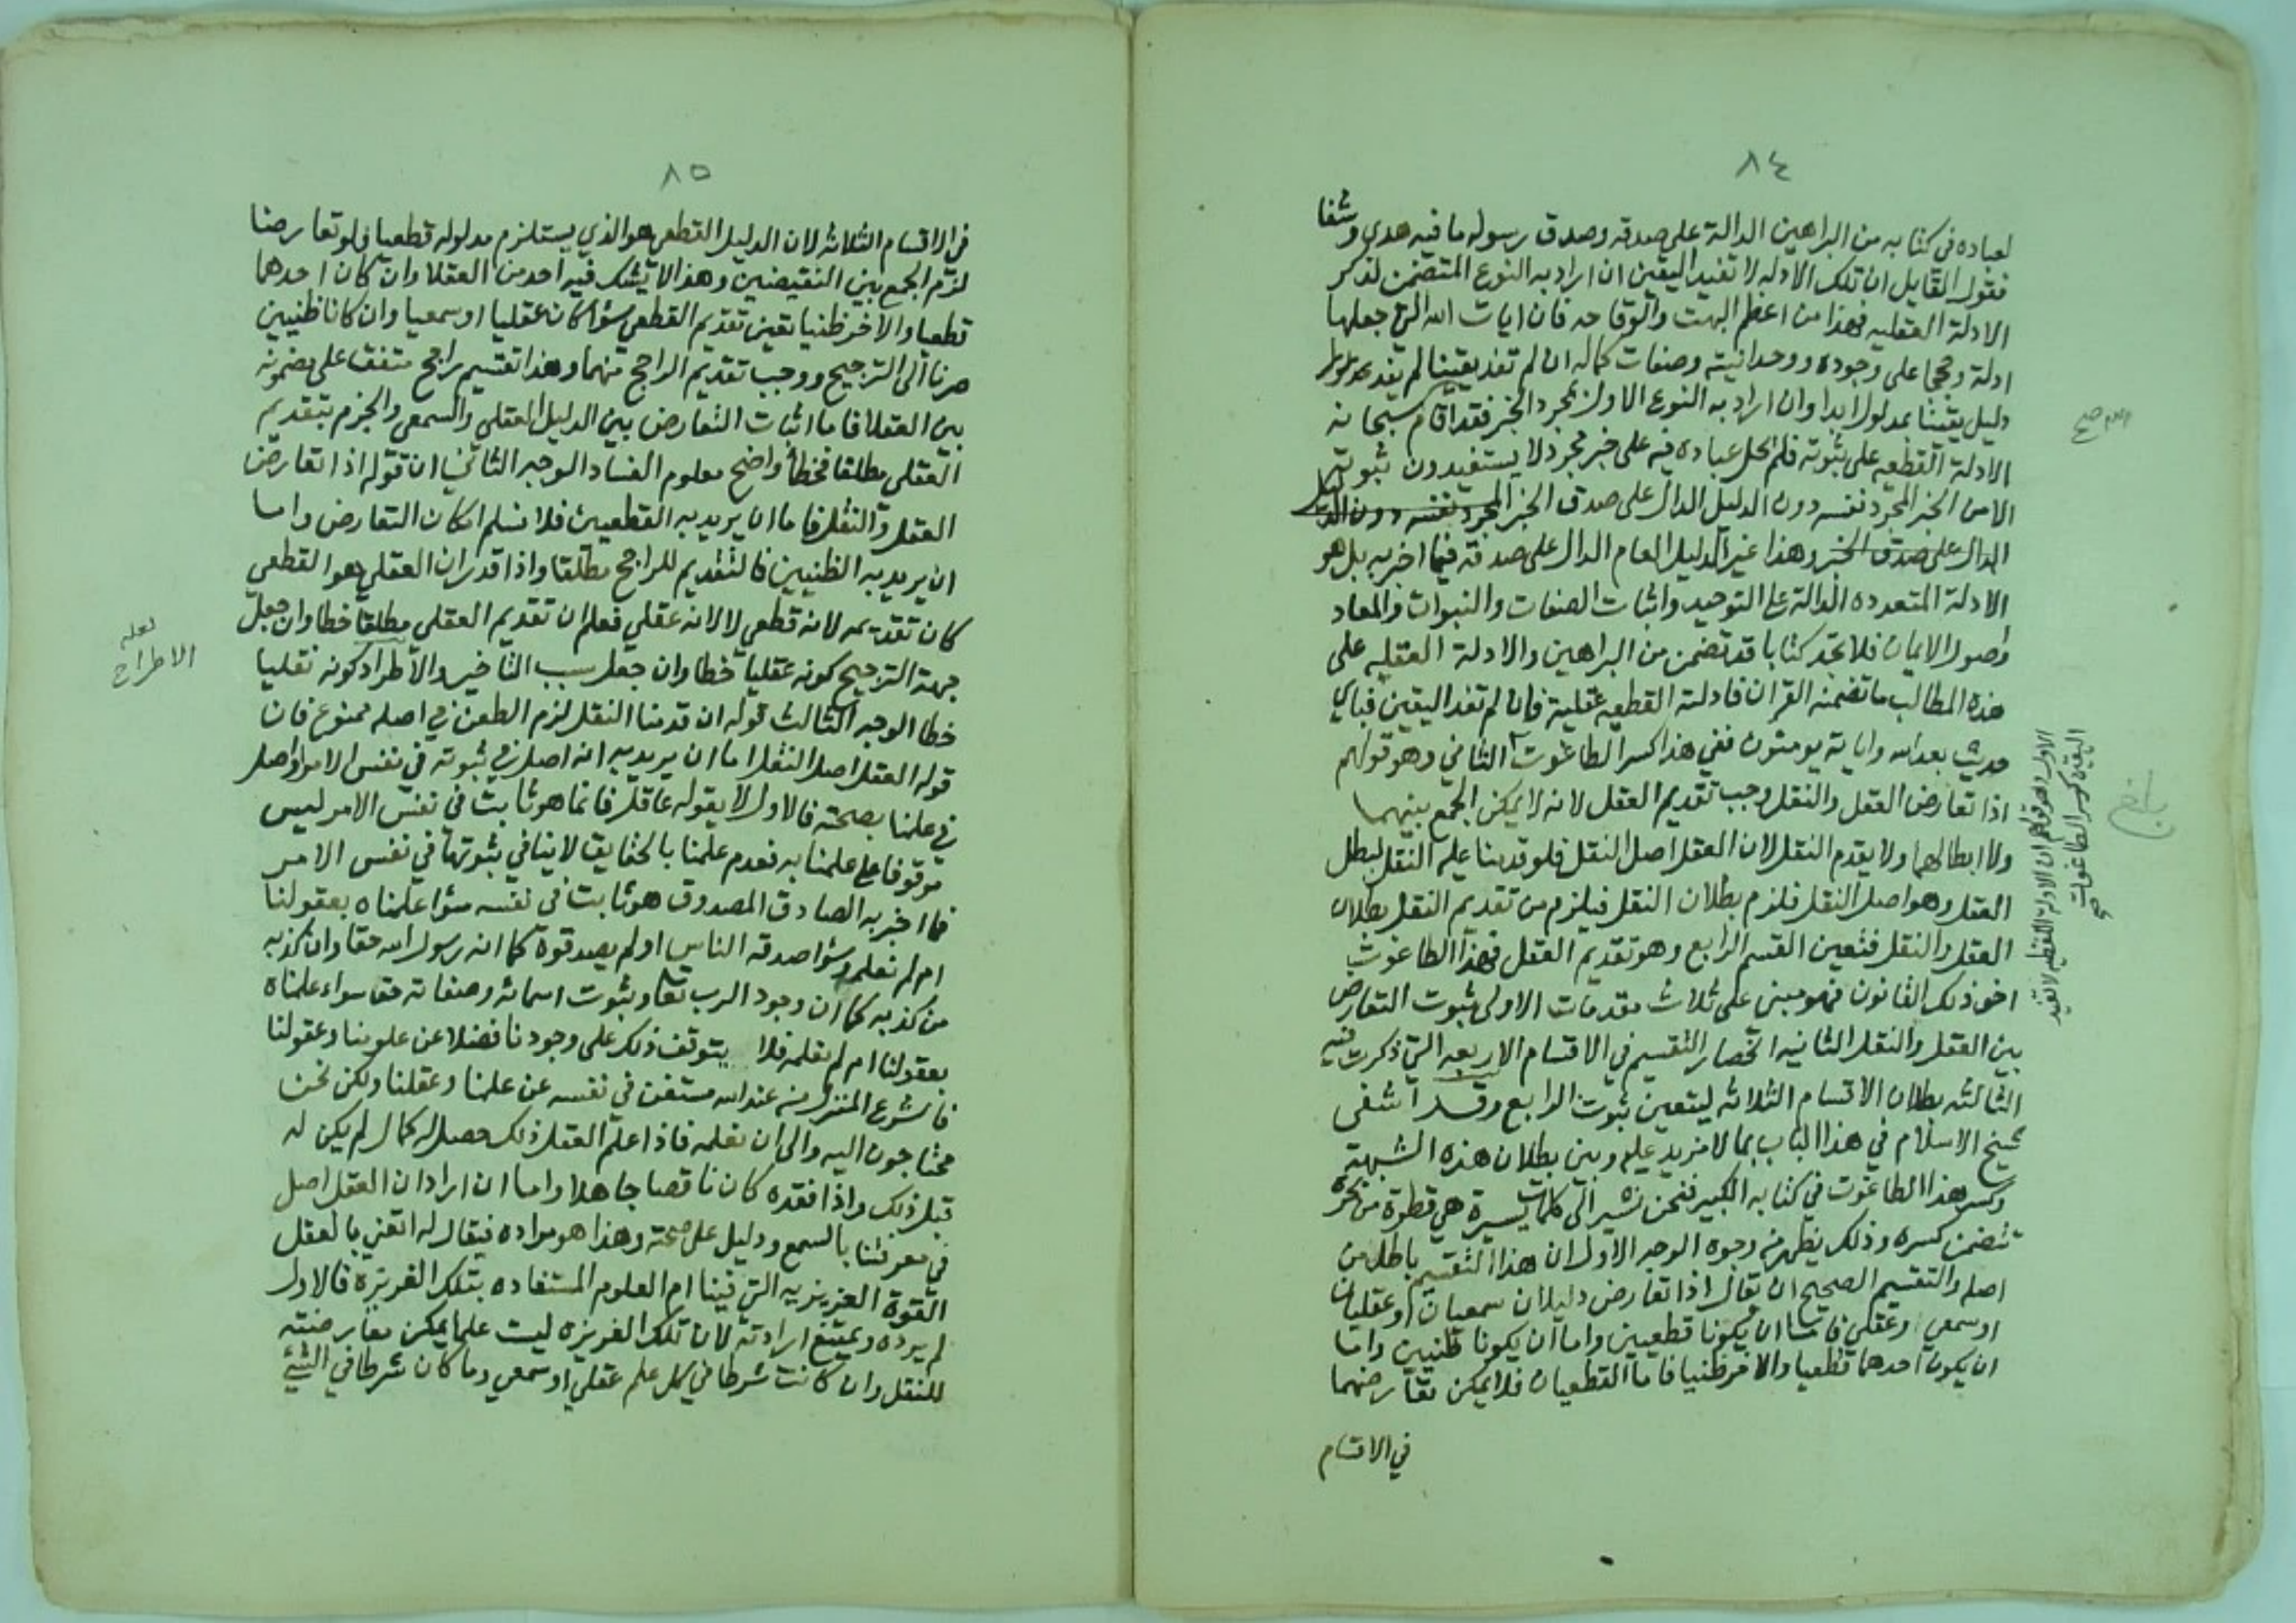 ٨٤
لعباده في كتابه من البراهين الدالة على صدقه وصدق رسوله ما فيه هدى وشفا
فقول القايل ان تلك الادله لا تفيد اليقين ان اراد به النوع المتضمن لذكر
الادلة العقليه فهذا من اعظم البهت والوقاحه فان ايات الله التي جعلها
ادلة وحججا على وجوده ووحدانيته وصفات كماله ان لم تفد يقينا لم يفد
دليل يقينا بمدلول ابدا وان اراد به النوع الاول بمجرد الخبر فقد اقام سبحانه
الادلة القطعيه على ثبوته فلم يحل عباده فيه على خبر مجرد لا يستفيدون ثبوته
الا من الخبر المجرد نفسه دون الدليل الدال على صدق الخبر المجرد نفسه دون الدليل
الدال على صدق الخبر وهذا غير الدليل العام الدال على صدقه فيما اخبر به بل هو
الادلة المتعدده الدالة على التوحيد واثبات الصفات والنبوات والمعاد
واصول الايمان فلا تجد كتابا قد تضمن من البراهين والادلة العقليه على
هذه المطالب ما تضمنه القران فادلته القطعيه عقلية فان لم تفد اليقين فباي
حديث بعد الله واياته يومنون ففي هذا كسر الطاغوت الثاني وهو قولهم
اذا تعارض العقل والنقل وجب تقديم العقل لانه لا يمكن الجمع بينهما
ولا ابطالهما ولا يقدم النقل لان العقل اصل النقل فلو قدمنا عليه النقل لبطل
العقل وهو اصل النقل فلزم بطلان النقل فيلزم من تقديم النقل بطلان
العقل والنقل فتعين القسم الرابع وهو تقديم العقل فهذا الطاغوت
اخو ذلك القانون فهو مبني على ثلاث مقدمات الاولى ثبوت التعارض
بين العقل والنقل الثانيه انحصار التقسيم في الاقسام الاربعه التي ذكرت فيه
الثالثه بطلان الاقسام الثلاثه ليتعين ثبوت الرابع وقد اشفى
شيخ الاسلام في هذا الباب بما لا مزيد عليه وبين بطلان هذه الشبهة
وكسر هذا الطاغوت في كتابه الكبير فنحن نشير الى كلمات يسيرة هي قطرة من بحره
تتضمن كسره وذلك يظهر من وجوه الوجه الاول ان هذا التقسيم باطل من
اصله والتقسيم الصحيح ان يقال اذا تعارض دليلان سمعيان او عقليان
او سمعي وعقلي فاما ان يكونا قطعيين واما ان يكونا ظنيين واما
ان يكون احدهما قطعيا والاخر ظنيا فاما القطعيان فلا يمكن تعارضهما
في الاقسام
الاول وهو قولهم ان الادلة اللفظيه لا تفيد
اليقين كسر الطاغوت
صح
بلغ
٨٥
في الاقسام الثلاثه لان الدليل القطعي هو الذي يستلزم مدلوله قطعيا فلو تعارضا
لزم الجمع بين النقيضين وهذا لا يشك فيه احد من العقلا وان كان احدهما
قطعيا والاخر ظنيا تعين تقديم القطعي سوا كان عقليا او سمعيا وان كانا ظنيين
صرنا الى الترجيح ووجب تقديم الراجح منهما وهذا تقسيم راجح متفق على مضمونه
بين العقلا فاما اثبات التعارض بين الدليل العقلي والسمعي والجزم بتقديم
العقلي مطلقا فخطأ واضح معلوم الفساد الوجه الثاني ان قوله اذا تعارض
العقل والنقل فاما ان يريد به القطعيين فلا نسلم امكان التعارض واما
ان يريد به الظنيين فالتقديم للراجح مطلقا واذا قدر ان العقلي هو القطعي
كان تقديمه لانه قطعي لا لانه عقلي فعلم ان تقديم العقلي مطلقا خطا وان جعل
جهة الترجيح كونه عقليا خطا وان جعل سبب التاخير والاطراد كونه نقليا
خطا الوجه الثالث قوله ان قدمنا النقل لزم الطعن في اصله ممنوع فان
قوله العقل اصل النقل اما ان يريد به انه اصل في ثبوته في نفس الامر او اصل
في علمنا بصحته فالاول لا يقوله عاقل فانما هو ثابت في نفس الامر ليس
موقوفا على علمنا به فعدم علمنا بالحقايق لا ينافي ثبوتها في نفس الامر
فما اخبر به الصادق المصدوق هو ثابت في نفسه سوا علمناه بعقولنا
ام لم نعلمه وسوا صدقه الناس او لم يصدقوه كما انه رسول الله حقا وان كذبه
من كذبه كما ان وجود الرب تعا وثبوت اسمائه وصفاته حق سواء علمناه
بعقولنا ام لم نعلمه فلا يتوقف ذلك على وجودنا فضلا عن علومنا وعقولنا
فالشرع المنزل من عند الله مستغن في نفسه عن علمنا وعقلنا ولكن نحن
محتاجون اليه والى ان نعلمه فاذا علم العقل ذلك حصل له كمال لم يكن له
قبل ذلك واذا فقده كان ناقصا جاهلا واما ان اراد ان العقل اصل
في معرفتنا بالسمع ودليل على صحته وهذا هو مراده فيقال له اتعني بالعقل
القوة الغريزيه التي فينا ام العلوم المستفاده بتلك الغريزه فالاول
لم يرده ويمتنع ارادته لان تلك الغريزه ليست علما يمكن معارضته
للنقل وان كانت شرطا في كل علم عقلي او سمعي وما كان شرطا في الشيئ
لعله
الاطراح